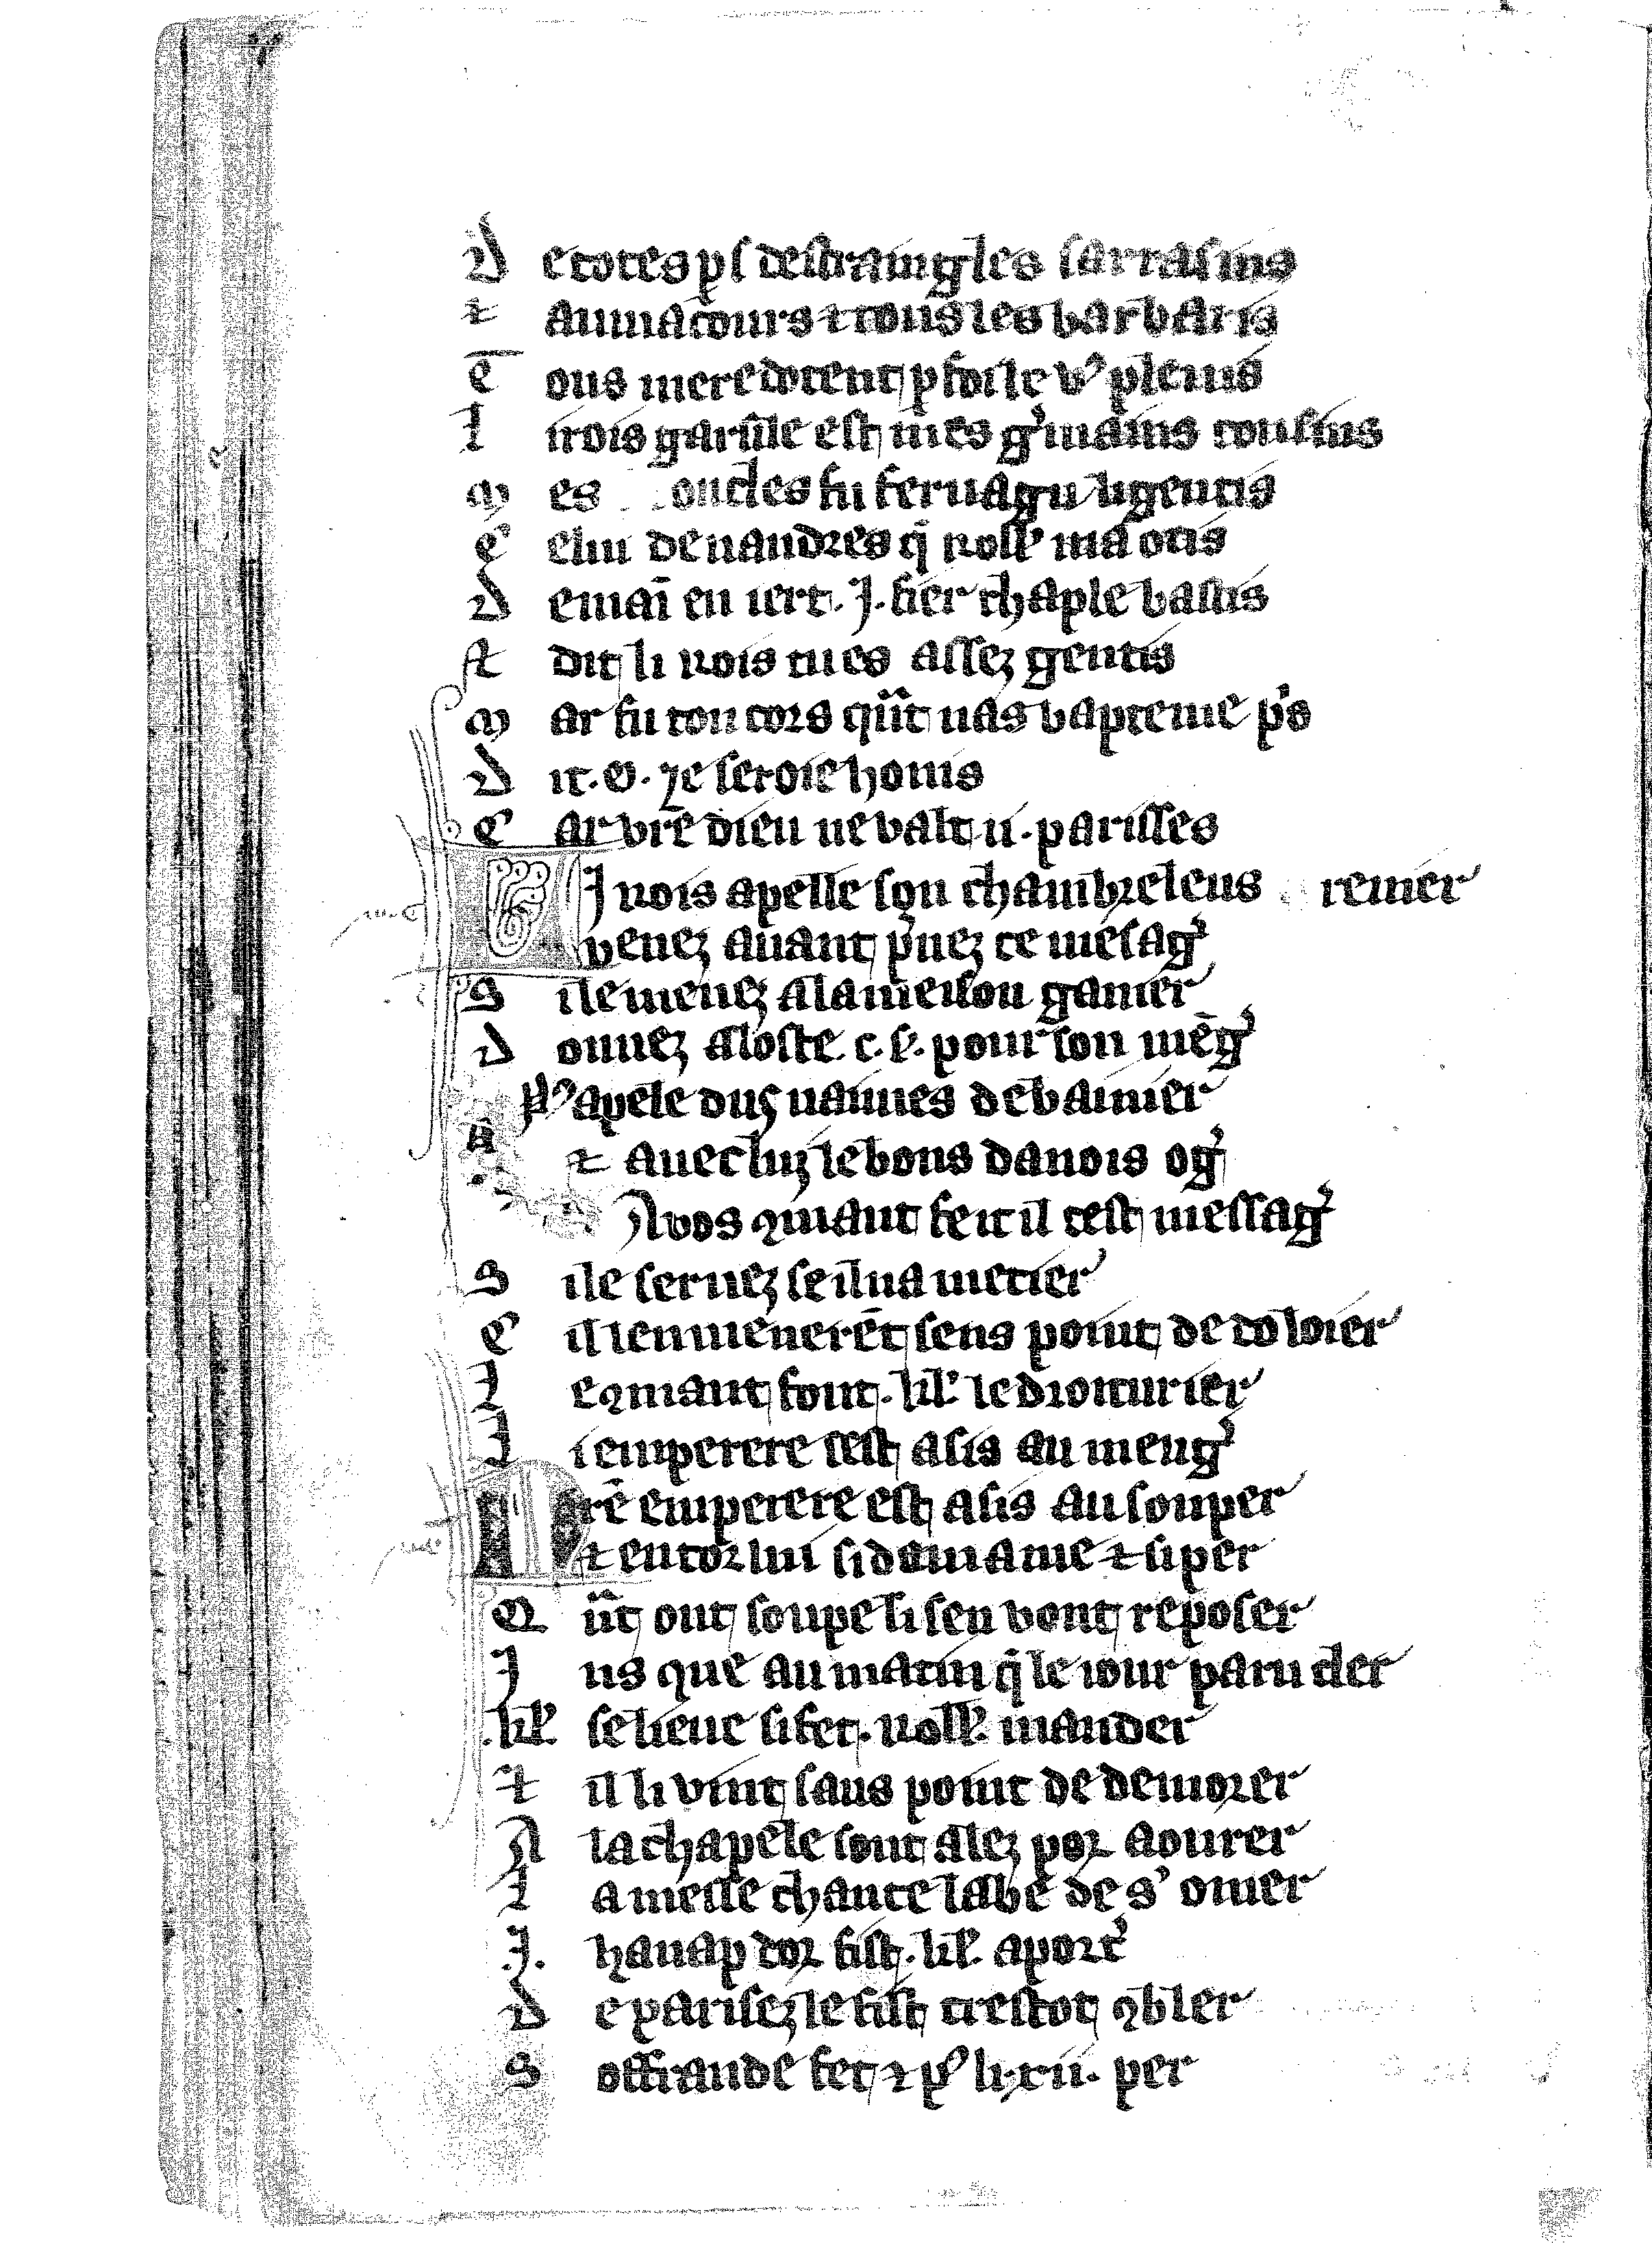 D e totes ꝑs destraing les sarrasins
⁊ aumacours ⁊ tous les barbaris
C̄ ous mere doient ꝑ foi le vͦ pleuis
L irois garsile est mes gˈmains cousins
M es oncles fu fernagu li gentis
C elui de nandres q̄ roll' ma ocis
D emaī en iert .J. fier chaple bastis
A dit li rois tu es assez gentis
M ar fu ton cors qn̄t nas bapteme pˈs
D it .O. ie seroie honis
C ar vrē dieu ne valt .ii. parisses
L J rois apelle son chambrelens remer
venez auant pˈnez ce mesagˈ
S i le menez a la meison garner
D onnez a loste .c. s. pour son mēgˈ
Pͦ apele dus naimes de baiuier
⁊ auec lui le bons danois ogˈ
A vos ꝯmant feit il cest messagˈ
S i le seruez se il na metier
C il len menerēt sens point de toloier
L e ꝯmant font .kl'. le droiturier
L i emperere sest asis au mengˈ
N rē emperere est asis au souper
⁊ entor lui si domaine ⁊ si per
Q n̄t ont soupe si sen vont reposer
J us que au matin q̄ le iour paru cler
.kl'. se lieue si fet .roll'. mander
⁊ il li vint sans point de demorer
A la chapele sont alez por aourer
L a messe chante labe de sˈ omer
.J. hanap dor fist .kl'. aportˈ
D e parisez le fist trestot ꝯbler
S offrande fet ⁊ pͦ li .xii. per